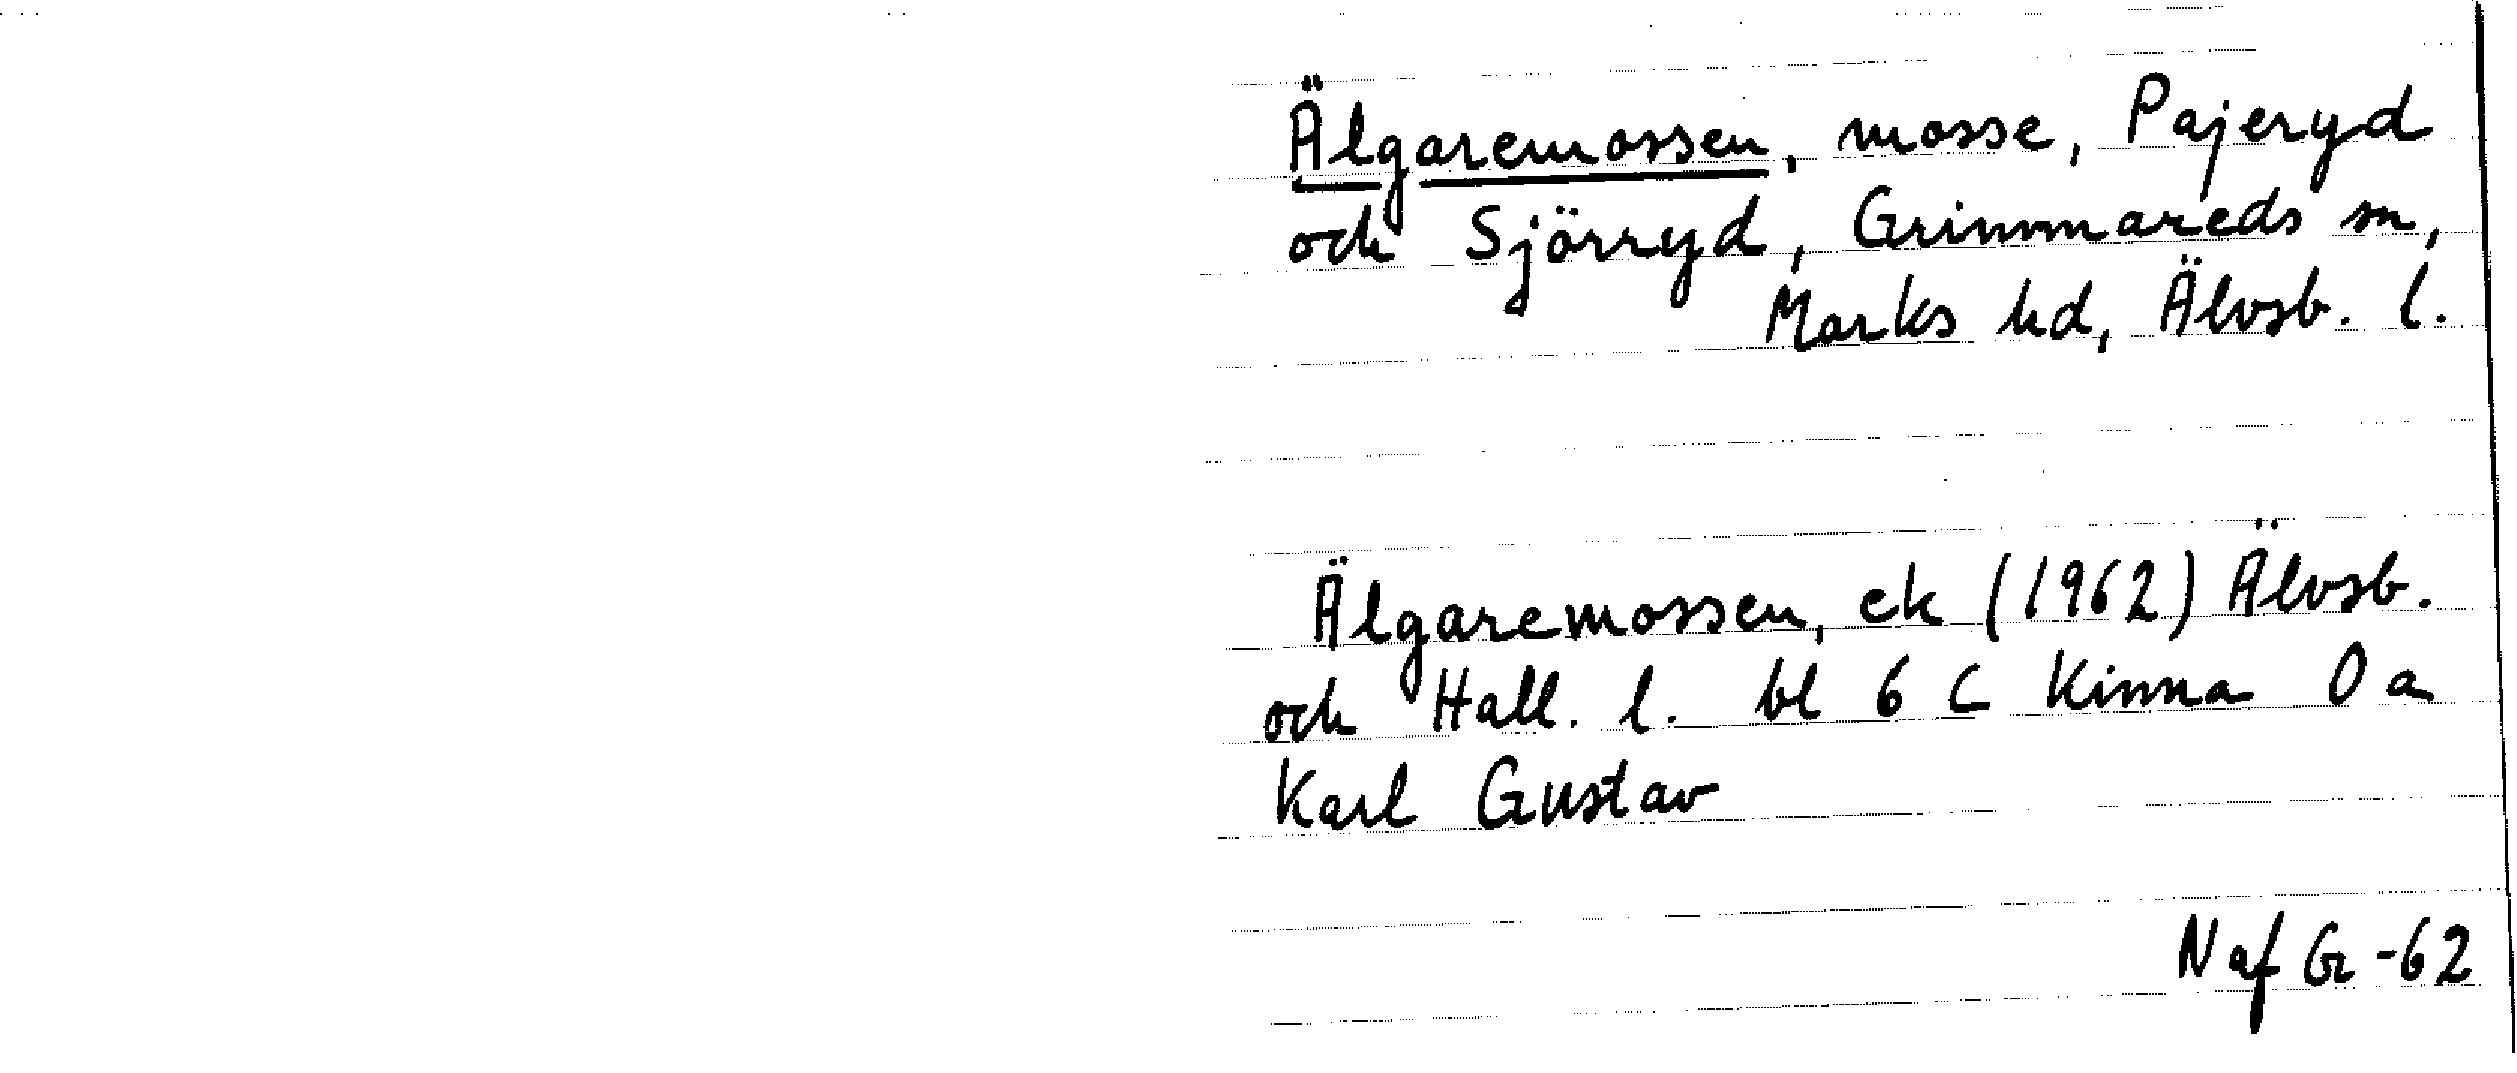 Älgaremossen, mosse, Pajeryd
och Sjörryd, Grimmareds sn,
Marks hd, Älvsb. l.
Älgaremossen, ek (1962) Älvsb.
och Hall. l. bl 6 C Kinna 0 a
Karl Gustav
Naf Gr -62